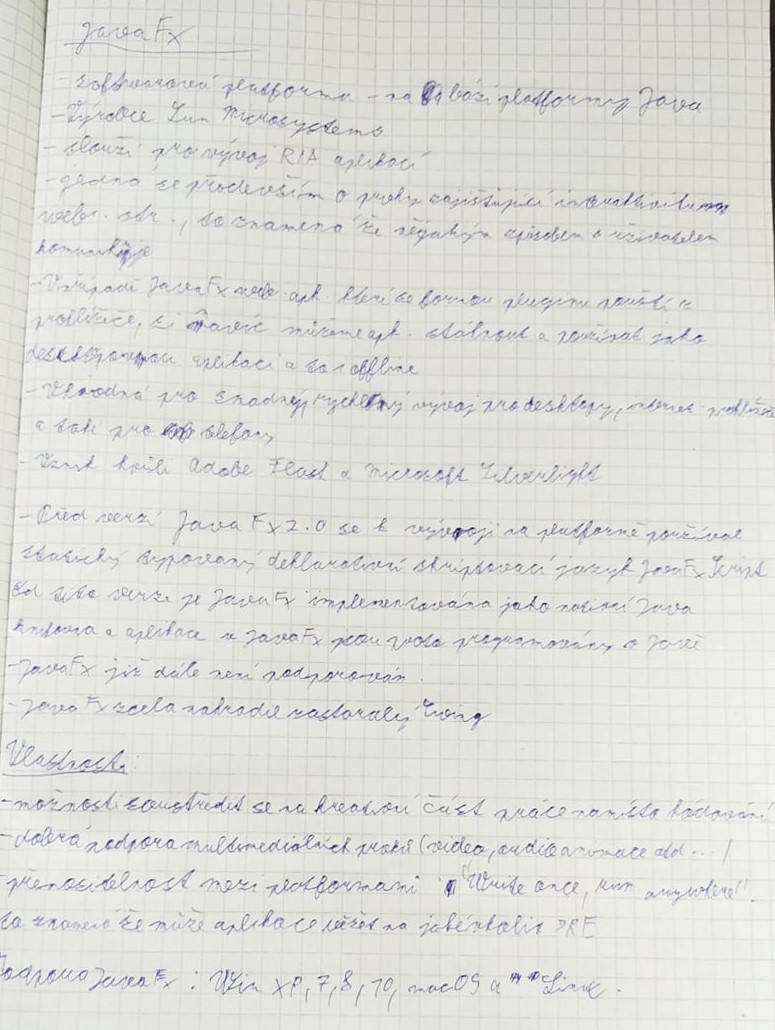 Java Fx
- softwarová platforma - na bázi platformy Java
- Výrobce Sun Microsystems
- slouží pro vývoj RIA aplikací
- jedná se především o prvky zajišťující interaktivitu
web. str., to znamená že nějakým způsobem s uživatelem
komunikuje
- V případě JavaFx webo apk. které se formou pluginu pouští v
prohlížeče, si navíc můžeme apk. stáhnout a používat jako
desktopovou aplikaci a to i offline
- Vhodná pro snadný, rychlý vývoj pro desktopy, internet. prohlížeče
a také pro telefony
- Vznik kvůli Adobe Flash a Microsoft Silverlight
- Před verzí Java Fx 2.0 se k vývoji na platformě používal
staticky typovaný deklarativní skriptovací jazyk JavaFx Script
Od této verze je JavaFx implementována jako nativní Java
knihovna a aplikace v JavaFx jsou zcela programovány v Javě
- JavaFx již dále není podporován.
- Java Fx zcela nahradil zastaralý Swing
Vlastnosti:
- možnosti soustředit se na kreativní část práce namísto kódování
- dobrá podpora multimediálních prvků (videa, audio animace atd...)
- přenositelnost mezi platformami "Write once, run anywhere".
to znamená že může aplikace běžet na jakémkoliv JRE
Podpora JavaFx : Win XP, 7, 8, 10, macOS a Linux.